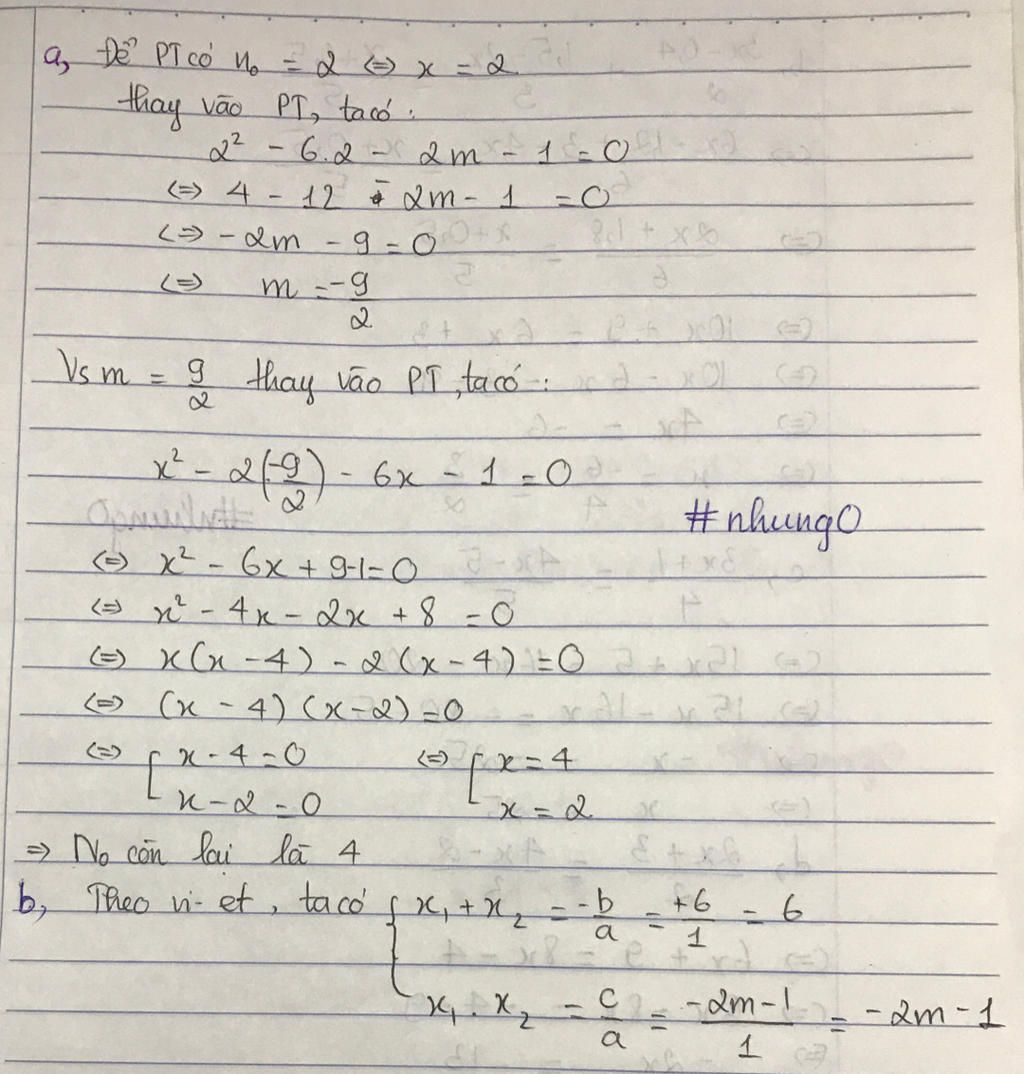 a, Để PT có n₀ = 2 <=> x = 2
thay vào PT, ta có:
2² - 6.2 - 2m - 1 = 0
<=> 4 - 12 - 2m - 1 = 0
<=> -2m - 9 = 0
<=> m = -9/2
Vs m = 9/2 thay vào PT, ta có:
x² - 2(-9/2) - 6x - 1 = 0
#nhung0
<=> x² - 6x + 9-1 = 0
<=> x² - 4x - 2x + 8 = 0
<=> x(x - 4) - 2(x - 4) = 0
<=> (x - 4)(x - 2) = 0
<=> [ x - 4 = 0 <=> [ x = 4
x - 2 = 0 x = 2
=> N₀ còn lại là 4
b, Theo vi-et, ta có { x₁ + x₂ = -b/a = +6/1 = 6
x₁ . x₂ = c/a = -2m-1/1 = -2m - 1